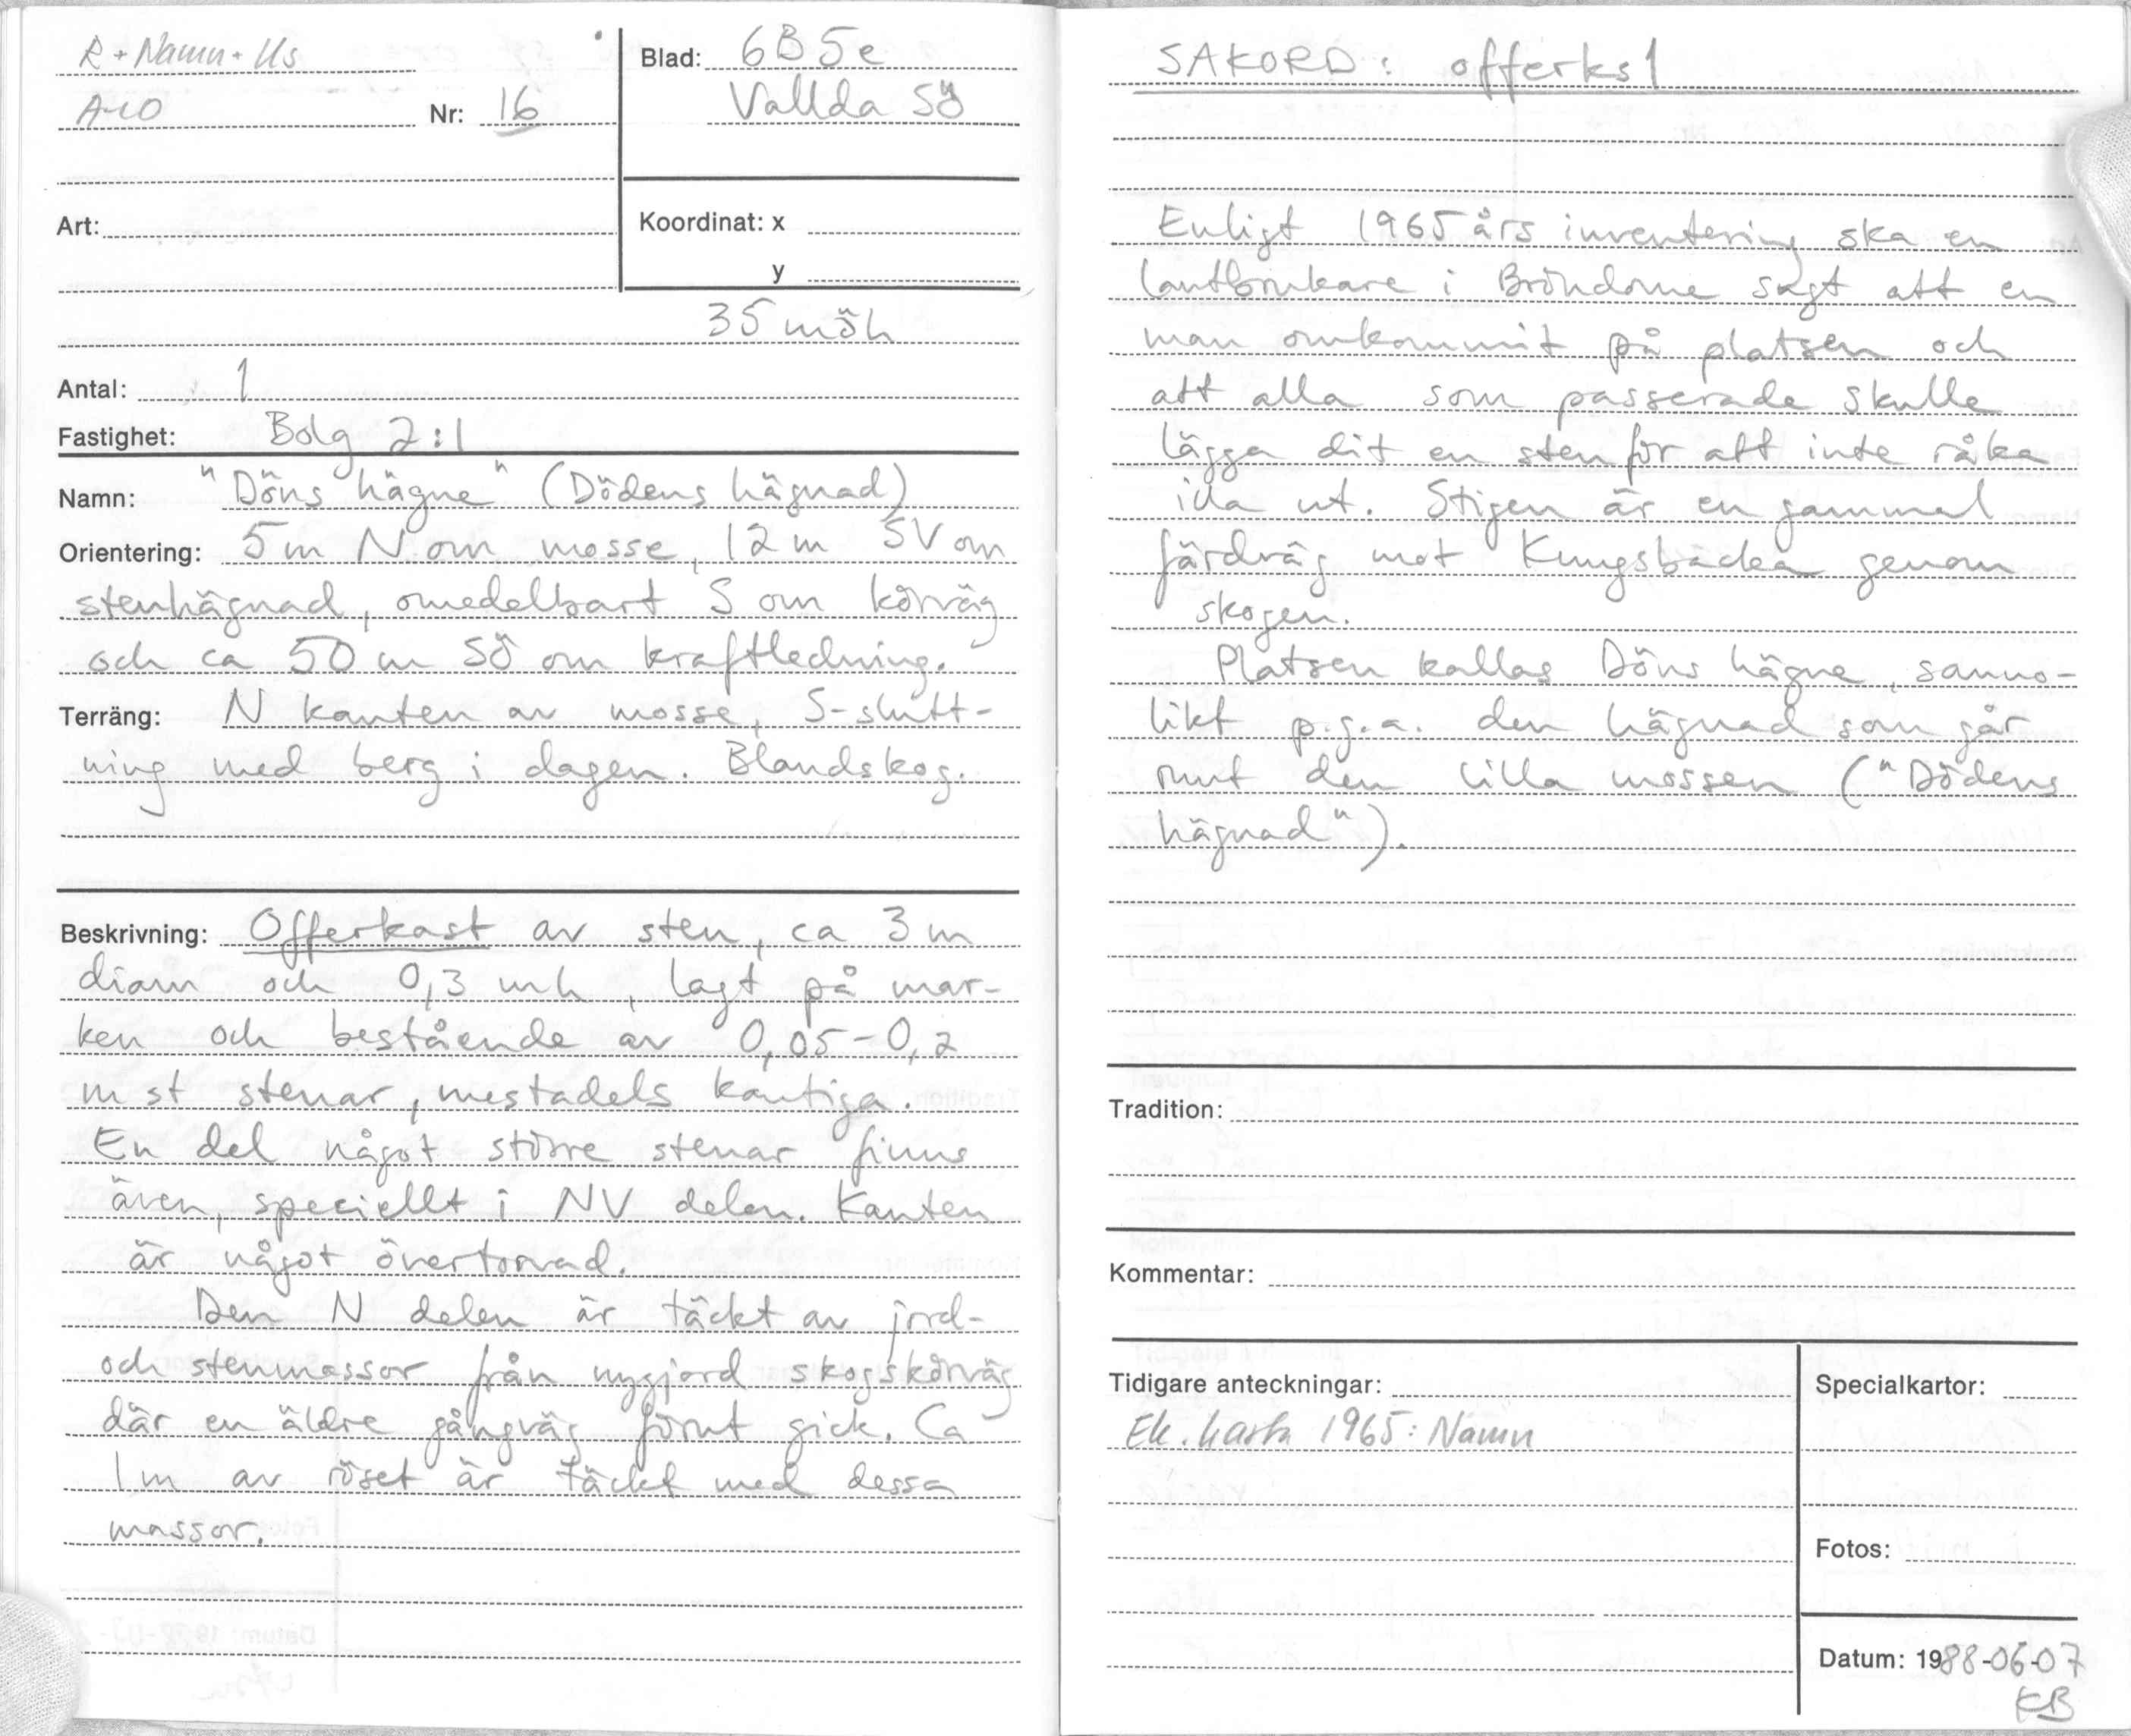 R + Namn + Us
A-10
Nr: 16
Blad: 6B5e
Vallda SÖ
Art:
Koordinat: x
y
35 möh
Antal: 1
Fastighet: Bolg 2:1
Namn: "Döns hägne" (Dödens hägnad)
Orientering: 5 m N om mosse, 12 m SV om
stenhägnad, omedelbart S om körväg
och ca 50 m SÖ om kraftledning.
Terräng: N kanten av mosse, S-slutt-
ning med berg i dagen. Blandskog.
Beskrivning: Offerkast av sten, ca 3 m
diam och 0,3 m h, lagt på mar-
ken och bestående av 0,05-0,2
m st stenar, mestadels kantiga.
En del något större stenar finns
även, speciellt i NV delen. Kanten
är något övertorvad.
Den N delen är täckt av jord-
och stenmassor från nygjord skogskörväg
där en äldre gångväg förut gick. Ca
1 m av röset är täckt med dessa
massor.
SAKORD: offerks 1
Enligt 1965 års inventering ska en
lantbrukare i Bröndome sagt att en
man omkommit på platsen och
att alla som passerade skulle
lägga dit en sten för att inte råka
illa ut. Stigen är en gammal
färdväg mot Kungsbacka genom
skogen.
Platsen kallas Döns hägne, sanno-
likt p.g.a. den hägnad som går
runt den lilla mossen ("Dödens
hägnad").
Tradition:
Kommentar:
Tidigare anteckningar:
Ek. karta 1965: Namn
Specialkartor:
Fotos:
Datum: 1988-06-07
KB